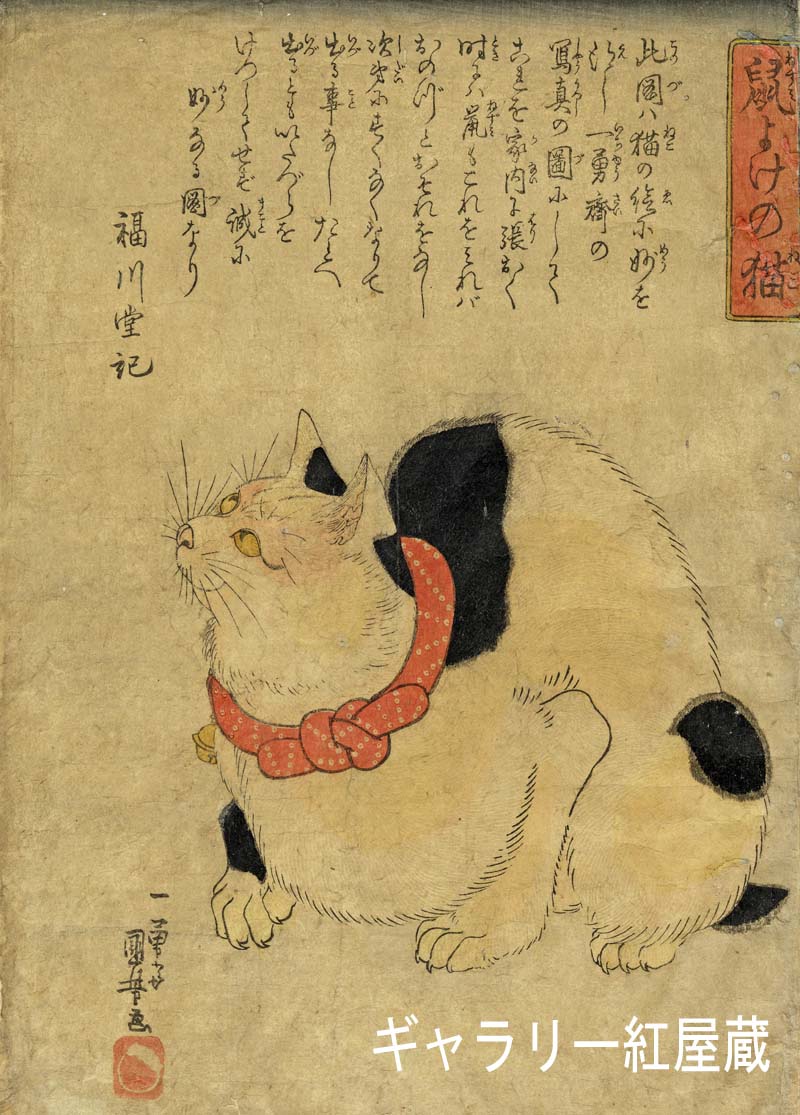 鼠よけの猫
此図ハ猫の絵に妙を
得し一勇齋の
写真の図にして
これを家内に張おく
時にハ鼠もこれをみれバ
おのづとおそれをなし
次第にすくなくなりて
出る事なしたとへ
出るともいたづらを
けつしてせず誠に
妙なる図なり
福川堂記
一勇斎
国芳画
ギャラリー紅屋蔵